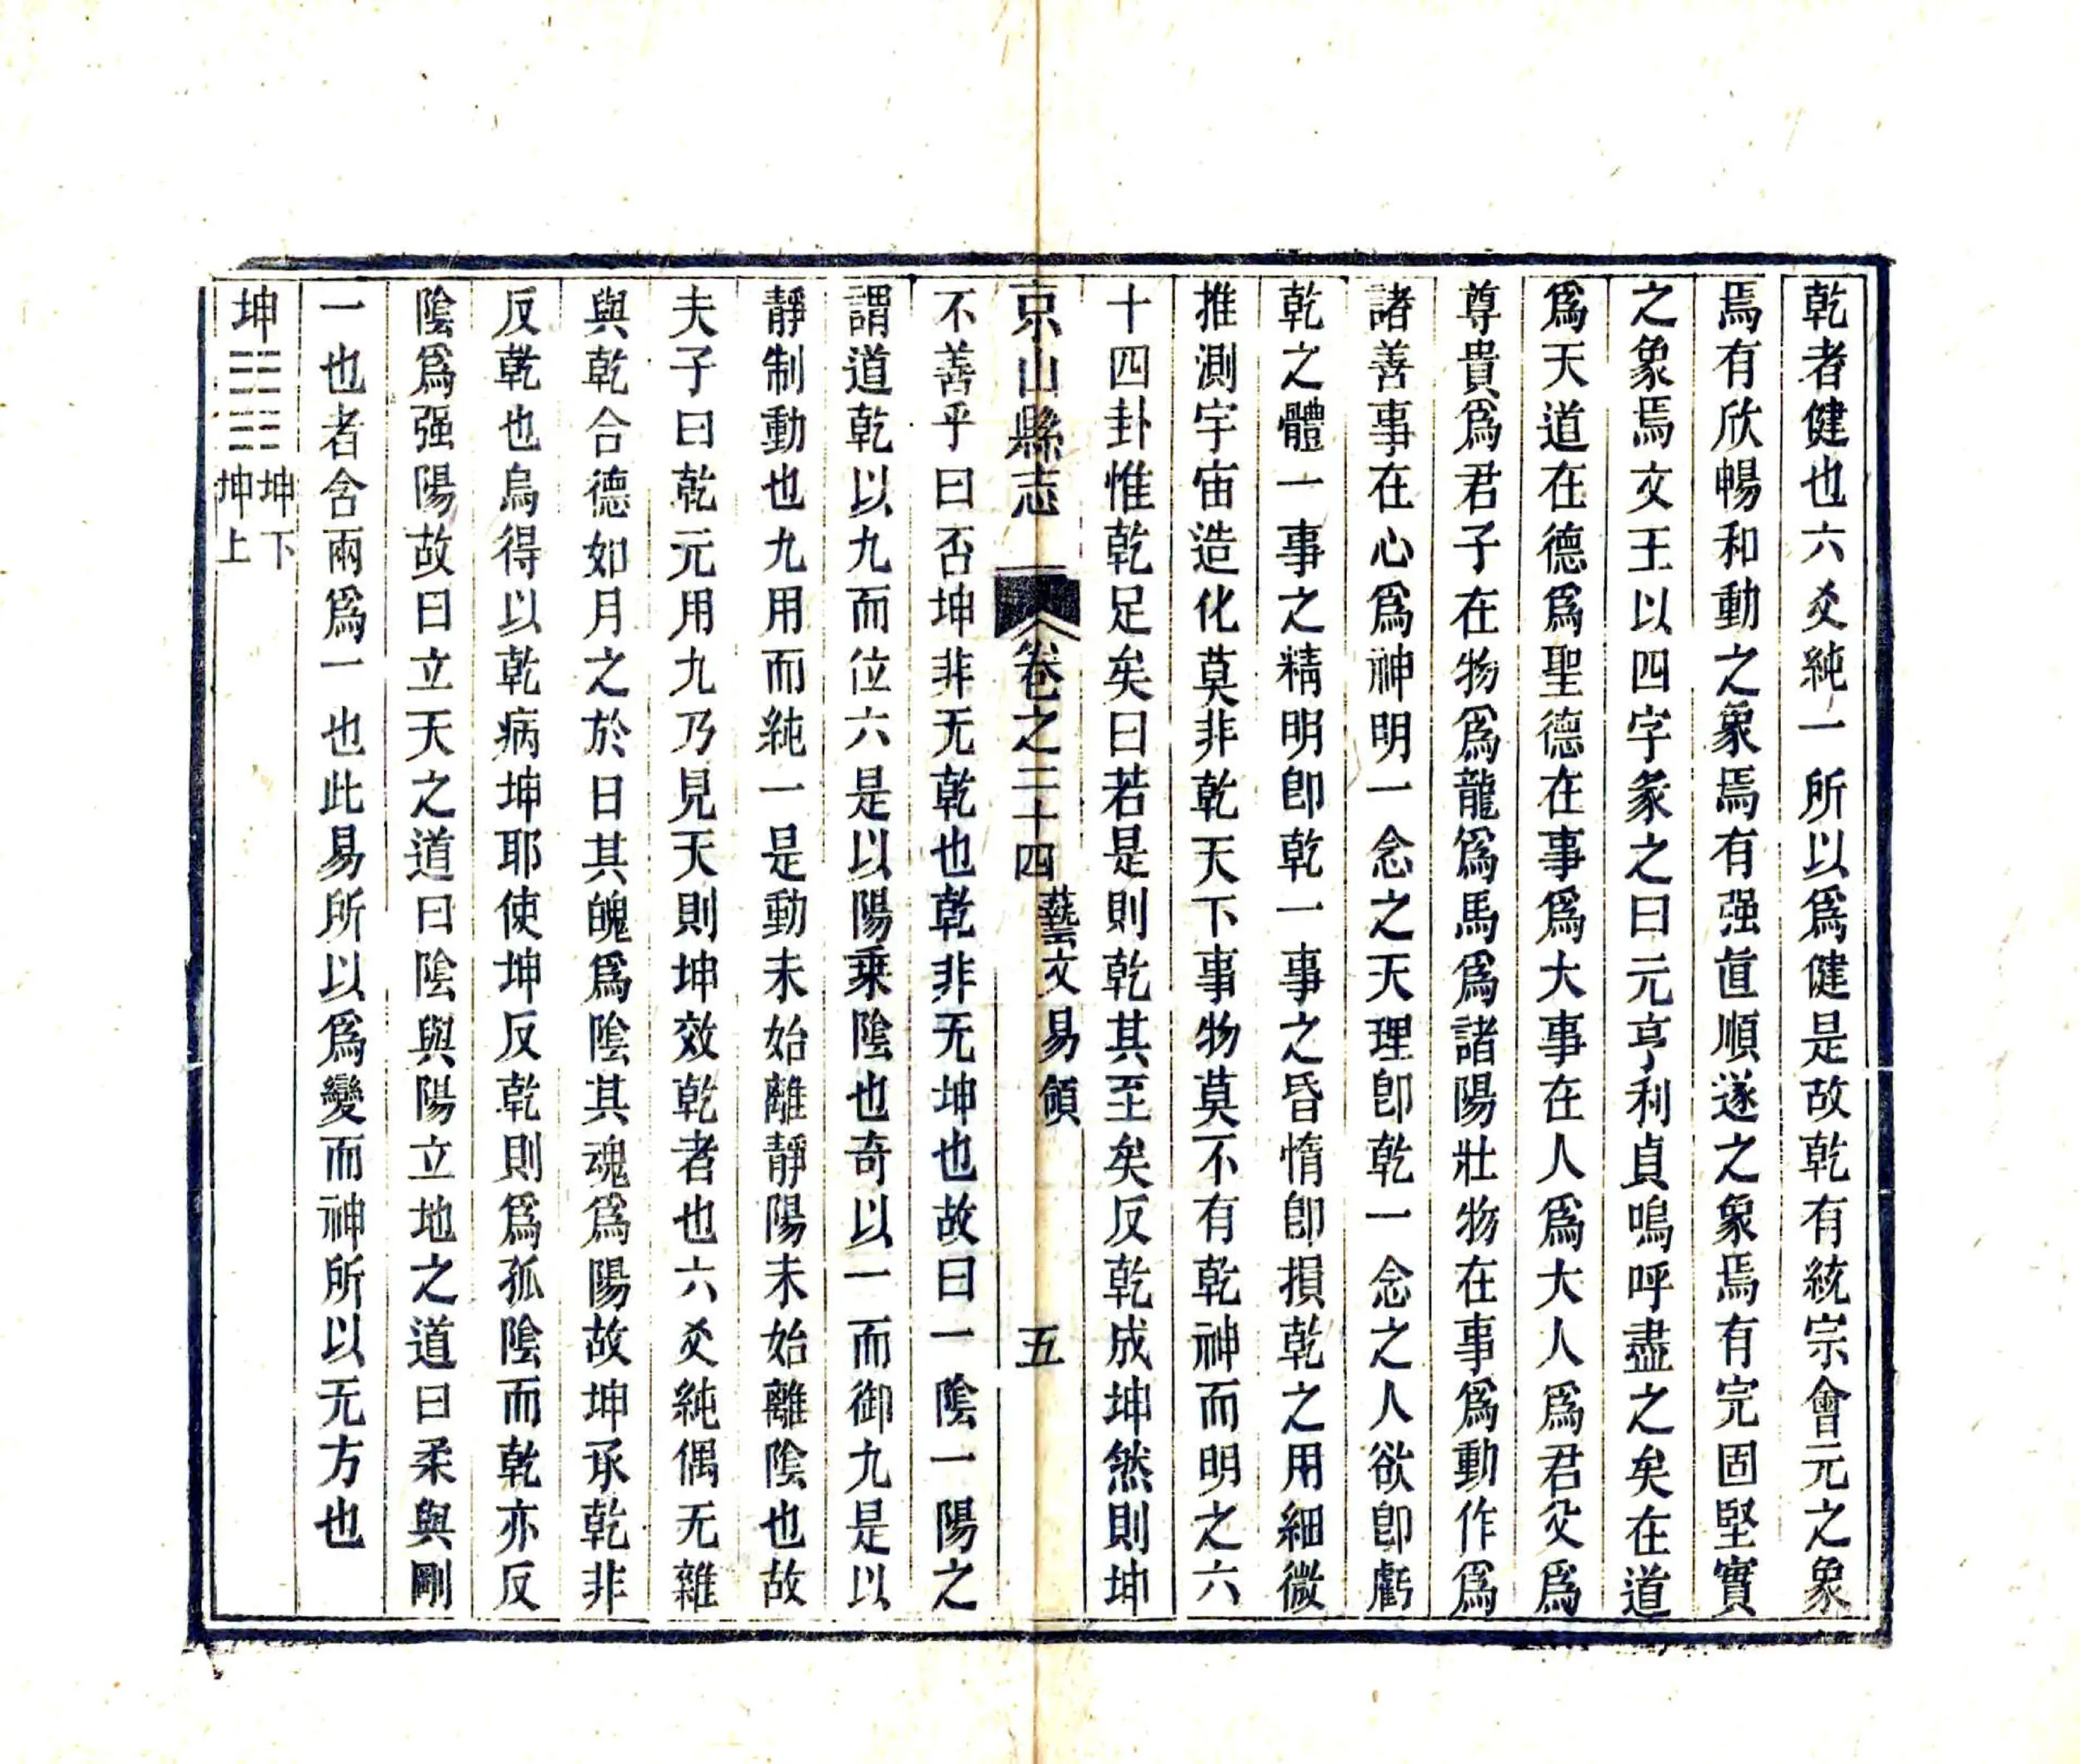 乾者健也六爻純一所以爲健是故乾有統宗會元之象
焉有欣暢和動之象焉有强直順遂之象焉有完固堅實
之象焉文王以四字彖之曰元亨利貞嗚呼盡之矣在道
爲天道在德爲聖德在事爲大事在人爲大人爲君父爲
尊貴爲君子在物爲龍爲馬爲諸陽壯物在事爲動作爲
諸善事在心爲神明一念之天理卽乾一念之人欲卽虧
乾之體一事之精明卽乾一事之昏惰卽損乾之用細微
推測宇宙造化莫非乾天下事物莫不有乾神而明之六
十四卦惟乾足矣曰若是則乾其至矣反乾成坤然則坤
京山縣志
卷之二十四
藝文易領
五
不善乎曰否坤非无乾也乾非无坤也故曰一陰一陽之
謂道乾以九而位六是以陽乘陰也奇以一而御九是以
靜制動也九用而純一是動未始離靜陽未始離陰也故
夫子曰乾元用九乃見天則坤效乾者也六爻純偶无雜
與乾合德如月之於日其魄爲陰其魂爲陽故坤承乾非
反乾也烏得以乾病坤耶使坤反乾則爲孤陰而乾亦反
陰爲强陽故曰立天之道曰陰與陽立地之道曰柔與剛
一也者含兩爲一也此易所以爲變而神所以无方也
坤☷☷坤下坤上